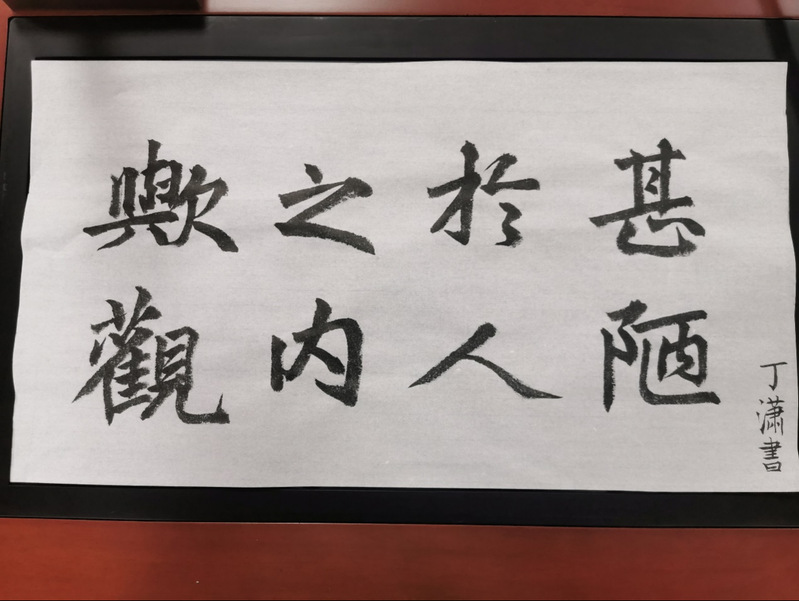 甚陋
於人
之内
歟觀
丁潇書